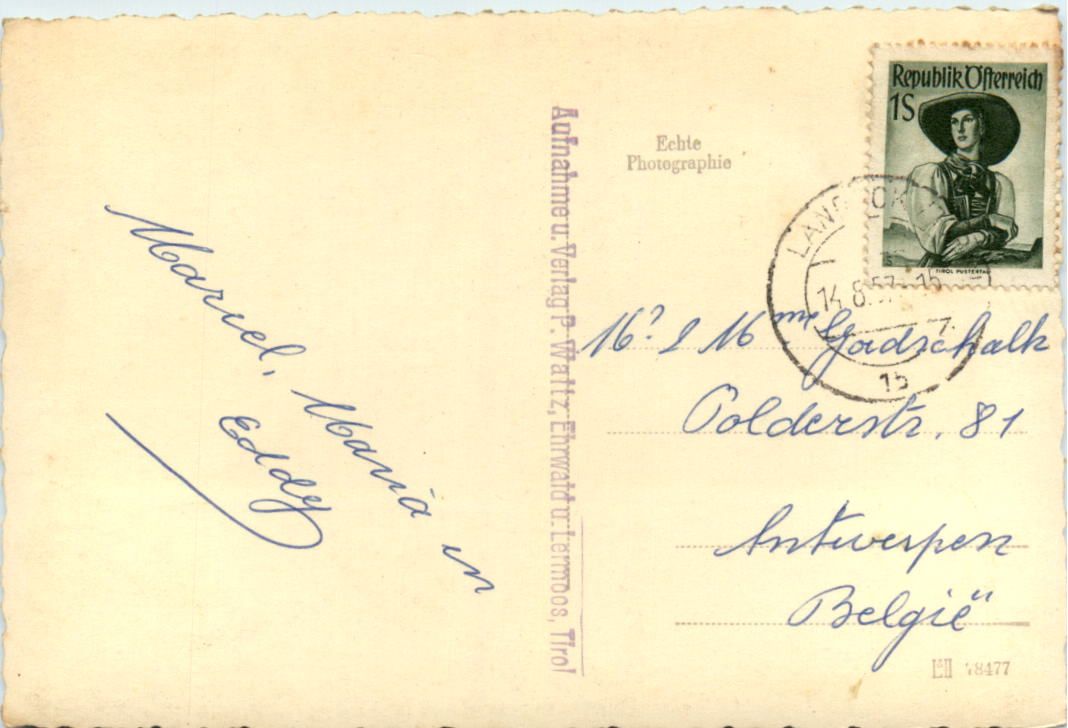 Marcel, Maria en
Eddy
Aufnahme u. Verlag P. Waltz, Ehrwald u. Lermoos, Tirol
Echte
Photographie
Republik Österreich
1S
TIROL PUSTERTAL
14.8.57-15
15
Mr & Mme Godschalk
Polderstr. 81
Antwerpen
België
78477